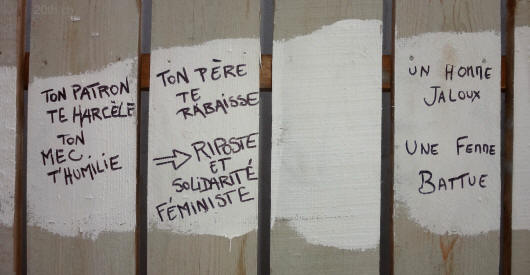 20th.ch
TON PATRON
TE HARCÈLE
TON
MEC.
T'HUMILIE
TON PÈRE
TE
RABAISSE
⇒ RIPOSTE
ET
SOLIDARITÉ
FÉMINISTE
UN HOMME
JALOUX
UNE FEMME
BATTUE